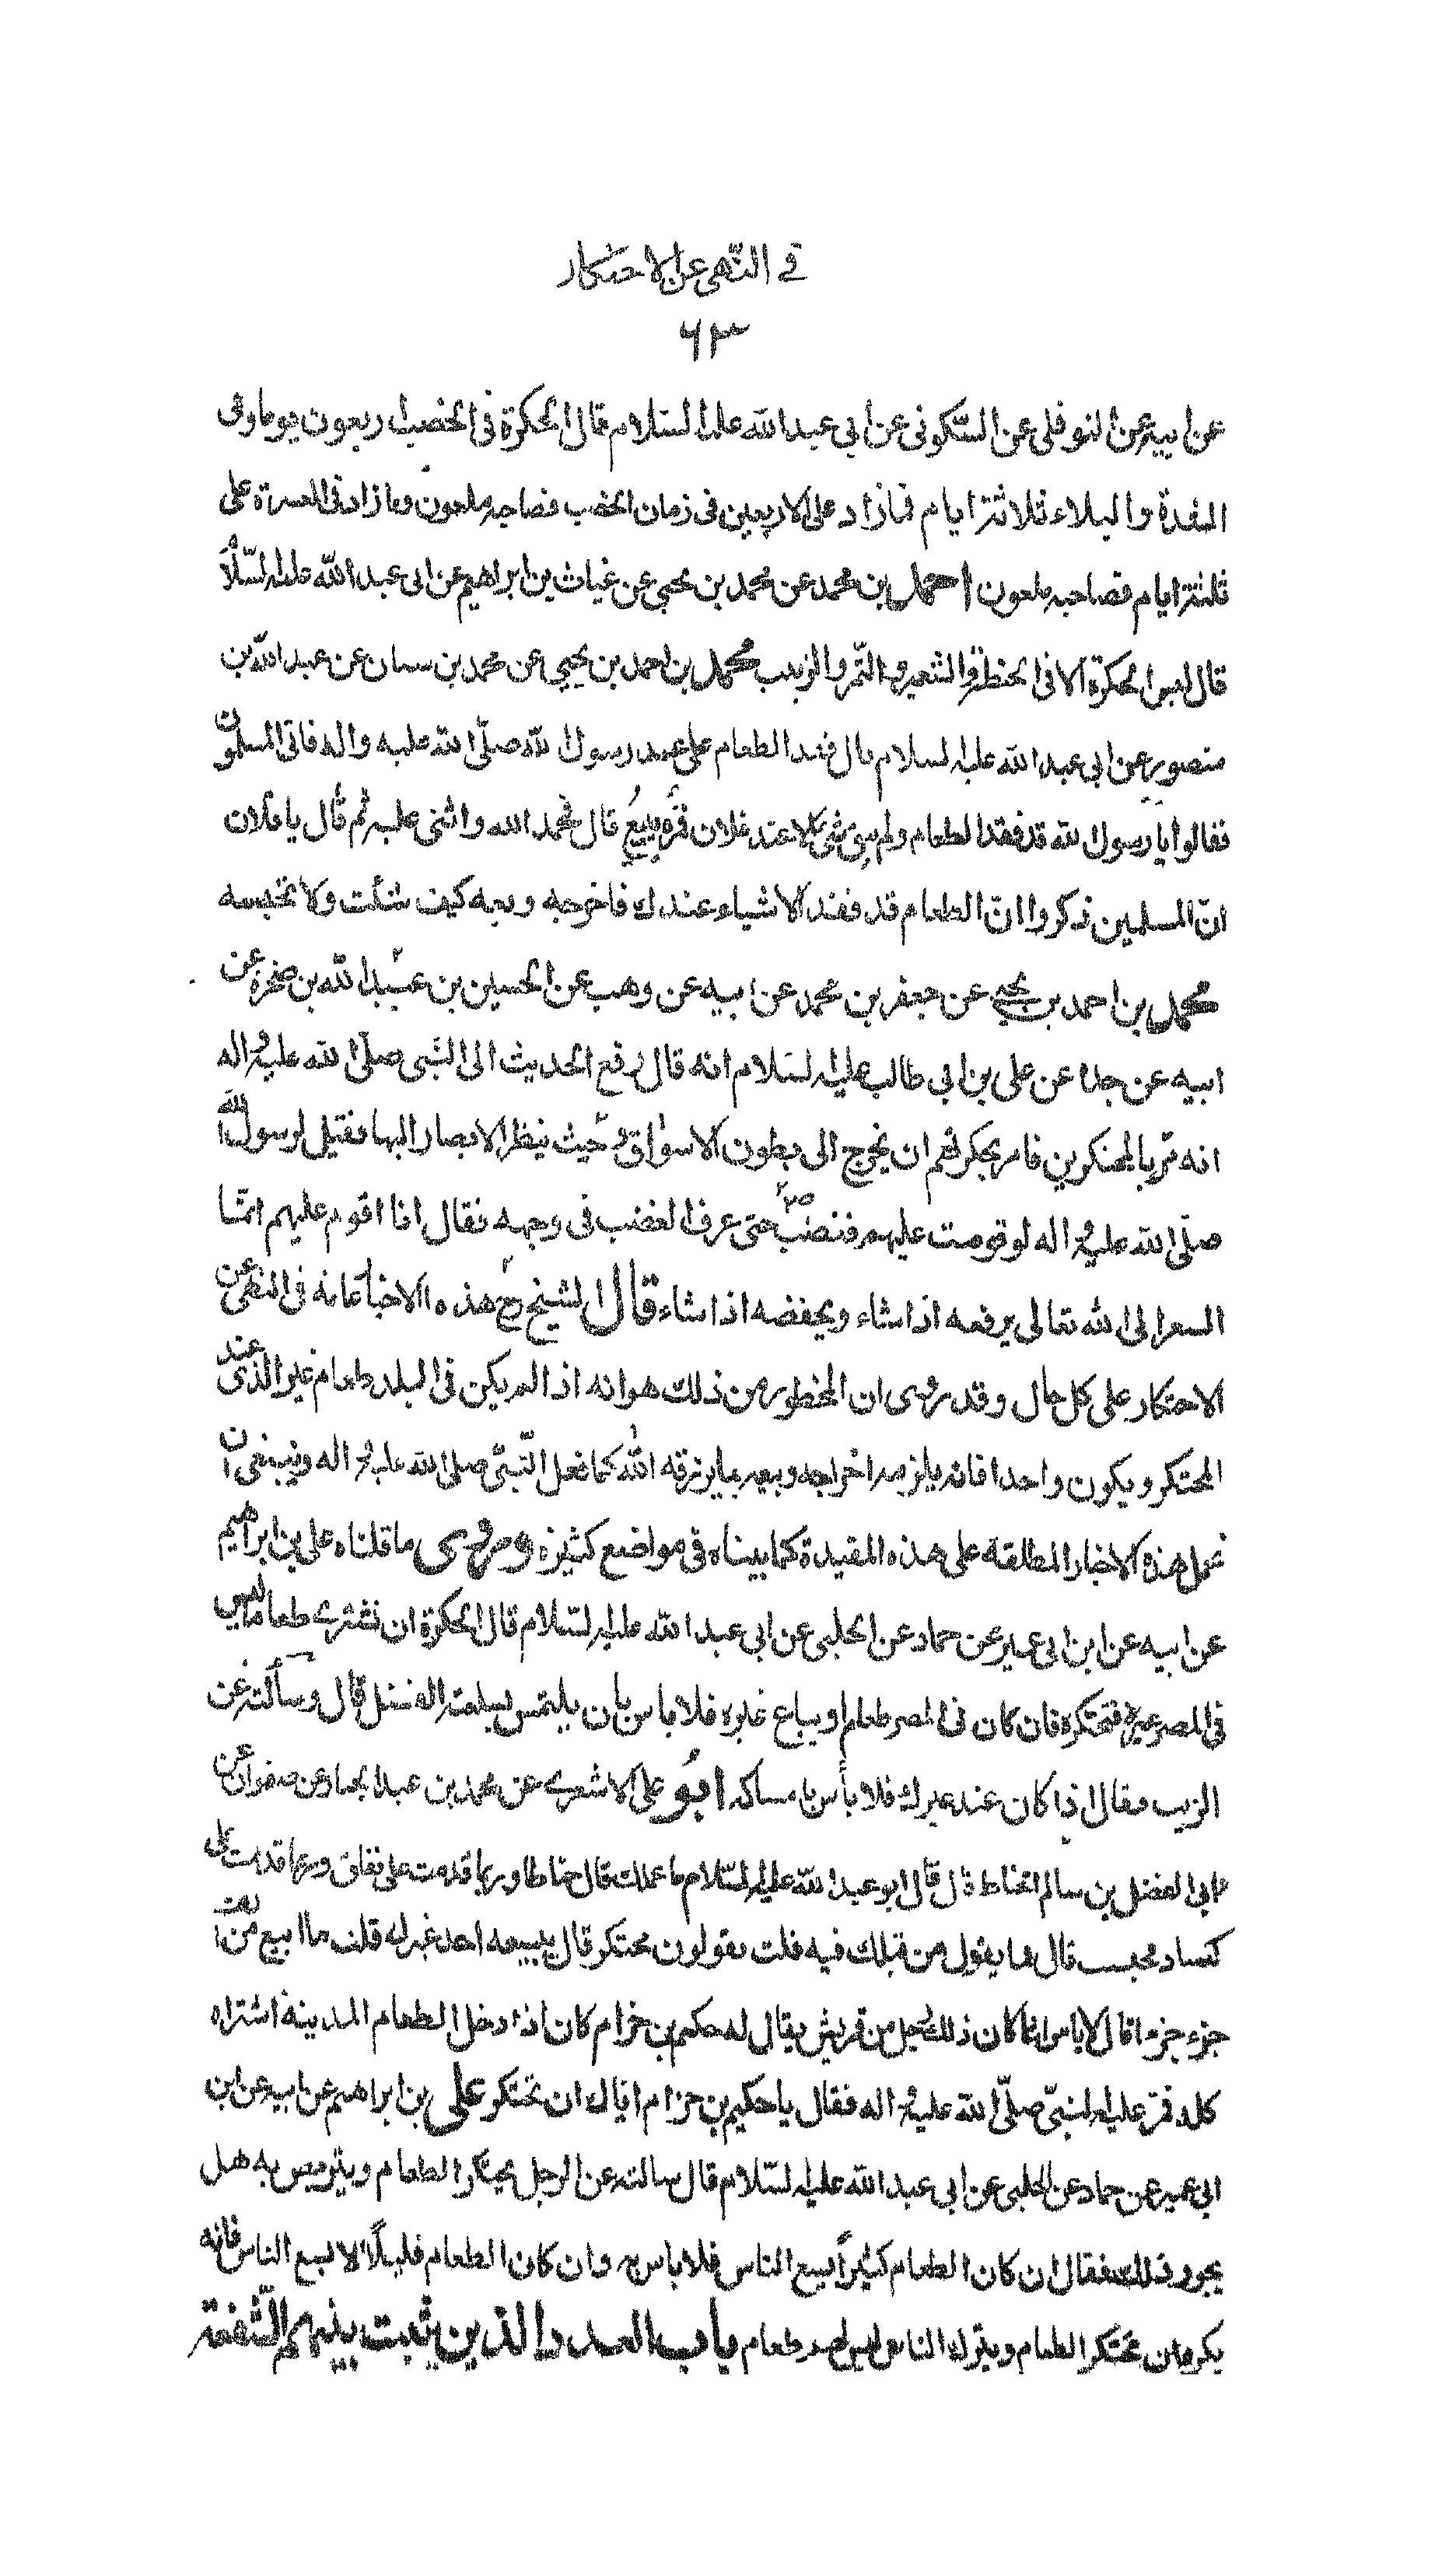 في النهى عن الاحتكار
٦٣
عن ابيه عن النوفلى عن السكونى عن ابي عبد الله عليه السلام قال الحكرة فى الخصب اربعون يوما وفى
الشدة والبلاء ثلاثة ايام فما زاد على الاربعين فى زمان الخصب فصاحبه ملعون وما زاد فى العسرة على
ثلثة ايام فصاحبه ملعون احمد بن محمد عن محمد بن يحيى عن غياث بن ابراهيم عن ابى عبد الله عليه السلام
قال ليس الحكرة الا فى الحنطة والشعير والتمر والزبيب محمد بن احمد بن يحيى عن محمد بن سنان عن عبد الله بن
منصور عن ابي عبد الله عليه السلام قال فقد الطعام على عهد رسول الله صلّى الله عليه واله فاتى المسلمون
فقالوا يا رسول الله قد فقد الطعام ولم يبق شئ الا عند فلان فمره يبيع قال فحمد الله واثنى عليه ثم قال يا فلان
انّ المسلمين ذكروا انّ الطعام قد فقد الا شياء عندك فاخرجه وبعه كيف شئت ولا تحبسه
محمد بن احمد بن يحيى عن جعفر بن محمد عن ابيه عن وهب عن الحسين بن عبيد الله بن ضمرة عن
ابيه عن جده عن على بن ابي طالب عليه السلام انه قال رفع الحديث الى النبى صلّى الله عليه واله
انه مرّ بالمحتكرين فامر بحكرتهم ان يخرج الى بطون الاسواق وحيث ينظر الابصار اليها فقيل لرسول الله
صلّى الله عليه واله لو قومت عليهم فغضب ص حتى عرف الغضب فى وجهه فقال انا اقوم عليهم انما
السعر الى الله تعالى يرفعه اذا شاء ويخفضه اذا شاء قال الشيخ رح هذه الاخبار عامة فى النهى عن
الاحتكار على كل حال وقد روى ان المحظور من ذلك هو انه اذا لم يكن فى البلد طعام غير الذى عند
المحتكر ويكون واحدا فانه يلزمه اخراجه وبيعه بما يرزقه الله كما فعل النّبىّ صلى الله عليه واله وينبغى ان
نحمل هذه الاخبار المطلقة على هذه المقيدة كما بيناه فى مواضع كثيرة وروى ما قلناه على بن ابراهيم
عن ابيه عن ابن ابى عمير عن حماد عن الحلبى عن ابي عبد الله عليه السلام قال الحكرة ان تشترى طعاما ليس
فى المصر غيره فتحتكره فان كان فى المصر طعام او يباع غيره فلا باس بان يلتمس بسلعته الفضل قال وسألته عن
الزيت فقال اذا كان عند غيرك فلا بأس بامساكه ابو على الاشعرى عن محمد بن عبد الجبار عن صفوان عن
ابى الفضل بن سالم الحناط قال قال ابو عبد الله عليه السلام ما عملك قال حناط وربما قدمت على نفاق وربما قدمت على
كساد فحبست قال فما يقول من قبلك فيه قلت يقولون محتكر قال يبيعه احد غيرك قلت ما ابيع من
جزء جزءا قال لا باس انما كان ذلك رجل من قريش يقال له حكيم بن حزام كان اذا دخل الطعام المدينة اشتراه
كله فمر عليه النبىّ صلّى الله عليه واله فقال يا حكيم بن حزام اياك ان تحتكر على بن ابراهيم عن ابيه عن ابن
ابى عمير عن حماد عن الحلبى عن ابي عبد الله عليه السلام قال سالته عن الرجل يحتكر الطعام ويتربص به هل
يجوز ذلك فقال ان كان الطعام كثيراً يسع الناس فلا باس به وان كان الطعام قليلاً لا يسع الناس فانه
يكره ان يحتكر الطعام ويترك الناس ليس لهم طعام باب العدد الذين يثبت بينهم الشفعة